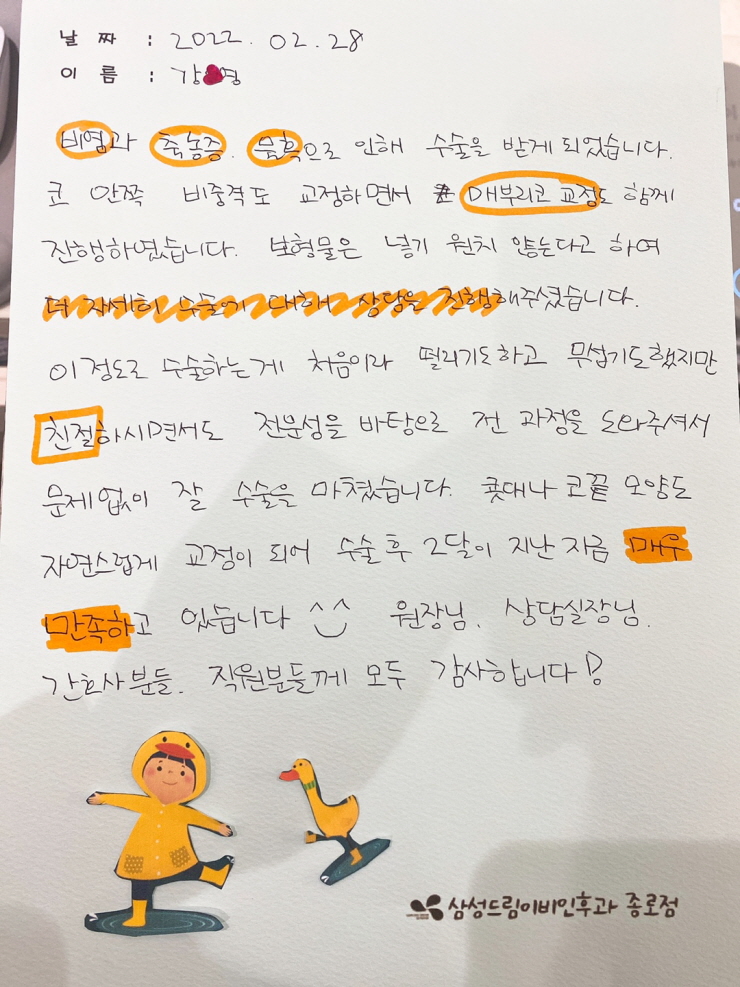 날 짜 : 2022. 02. 28
이 름 : 강 영
비염과 축농증. 물혹으로 인해 수술을 받게 되었습니다.
코 안쪽 비중격도 교정하면서 매부리코 교정도 함께
진행하였습니다. 보형물은 넣기 원치 않는다고 하여
더 자세히 수술에 대해 상담을 진행해주셨습니다.
이정도로 수술하는게 처음이라 떨리기도하고 무섭기도했지만
친절하시면서도 전문성을 바탕으로 전 과정을 도와주셔서
문제없이 잘 수술을 마쳤습니다. 콧대나 코끝 모양도
자연스럽게 교정이 되어 수술 후 2달이 지난 지금 매우
만족하고 있습니다 ^^ 원장님. 상담실장님.
간호사분들. 직원분들께 모두 감사합니다!
삼성드림이비인후과 종로점